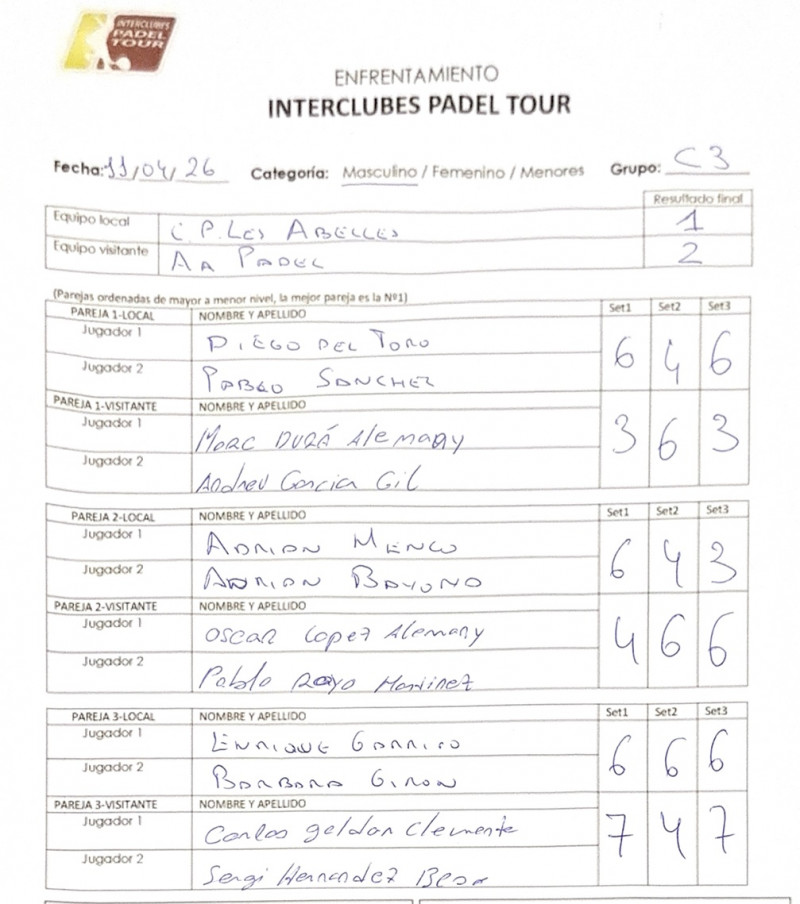 INTERCLUBES
PADEL
TOUR
ENFRENTAMIENTO
INTERCLUBES PADEL TOUR
Fecha: 11/04/26 Categoría: Masculino / Femenino / Menores Grupo: C3
Resultado final
Equipo local C.P. LES ABELLES 1
Equipo visitante AA PADEL 2
(Parejas ordenadas de mayor a menor nivel, la mejor pareja es la Nº1)
PAREJA 1-LOCAL NOMBRE Y APELLIDO Set1 Set2 Set3
Jugador 1 DIEGO DEL TORO
6 4 6
Jugador 2 PABLO SANCHEZ
PAREJA 1-VISITANTE NOMBRE Y APELLIDO
Jugador 1 MARC DURÁ Alemany
3 6 3
Jugador 2 Andreu Garcia Gil
PAREJA 2-LOCAL NOMBRE Y APELLIDO Set1 Set2 Set3
Jugador 1 ADRIAN
6 4 3
Jugador 2 ADRIAN BAYONO
PAREJA 2-VISITANTE NOMBRE Y APELLIDO
Jugador 1 OSCAR Lopez Alemany
4 6 6
Jugador 2 Pablo Rayo Martinez
PAREJA 3-LOCAL NOMBRE Y APELLIDO Set1 Set2 Set3
Jugador 1 ENRIQUE GARRIDO
6 6 6
Jugador 2 BARBARA GIRON
PAREJA 3-VISITANTE NOMBRE Y APELLIDO
Jugador 1 Carlos geldon Clemente
7 4 7
Jugador 2 Sergi Hernandez